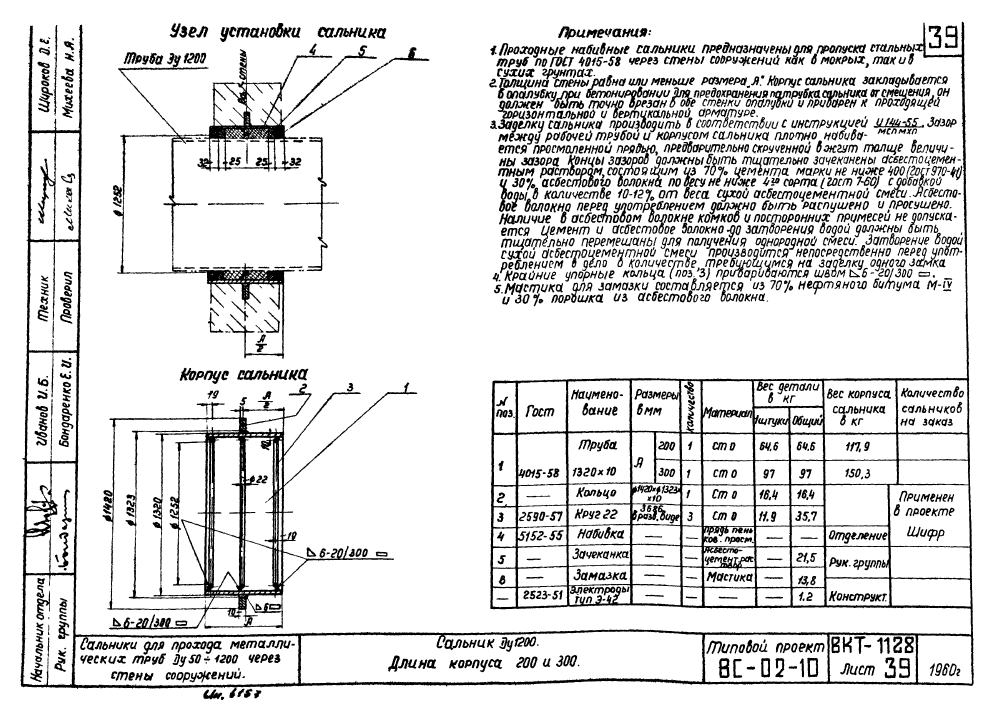 Узел установки сальника
Труба Ду 1200
4
5
6
ось стены
32
25
25
32
ф1252
А/2
Корпус сальника
19
5
А/2
2
3
1
10
ф22
ф1420
ф1323
ф1320
ф1252
19
6-20/300
6-20/300
10
6
А
Примечания:
39
1. Проходные набивные сальники предназначены для пропуска стальных
труб по ГОСТ 4015-58 через стены сооружений как в мокрых, так и в
сухих грунтах.
2. Толщина стены равна или меньше размера „А". Корпус сальника закладывается
в опалубку при бетонировании. Для предохранения патрубка сальника от смещения, он
должен быть точно врезан в обе стенки опалубки и приварен к проходящей
горизонтальной и вертикальной арматуре.
3. Заделку сальника производить в соответствии с инструкцией И 144-55 / МСП МХП. Зазор
между рабочей трубой и корпусом сальника плотно набива-
ется просмоленной прядью, предварительно скрученной в жгут толще величи-
ны зазора. Концы зазоров должны быть тщательно зачеканены асбестоцемен-
тным раствором, состоящим из 70% цемента марки не ниже 400 (гост 970-41)
и 30% асбестового волокна по весу не ниже 4го сорта (гост 7-60) с добавкой
воды в количестве 10-12% от веса сухой асбестоцементной смеси. Асбесто-
вое волокно перед употреблением должно быть распушено и просушено.
Наличие в асбестовом волокне комков и посторонних примесей не допуска-
ется. Цемент и асбестовое волокно до затворения водой должны быть
тщательно перемешаны для получения однородной смеси. Затворение водой
сухой асбестоцементной смеси производится непосредственно перед упот-
реблением в дело в количестве, требующимся на заделку одного замка
4. Крайние упорные кольца (поз. 3) привариваются швом 6-20/300
5. Мастика для замазки составляется из 70% нефтяного битума М-IV
и 30% порошка из асбестового волокна.
N поз. Гост Наимено-вание Размеры в мм количество Материал Вес детали в кг Штуки Общий Вес корпуса сальника в кг Количество сальников на заказ
1 4015-58 Труба 1320х10 А 200 1 ст 0 64,6 64,6 117,9
300 1 ст 0 97 97 150,3
2 — Кольцо ф1420хф1323х х10 1 Ст 0 16,4 16,4
3 2590-57 Круг 22 в разв. виде 3 Ст 0 11.9 35,7
4 5152-55 Набивка — — прядь пень ков. просм. — —
5 — Зачеканка — — Асбесто- цемент. раствор — 21,5
6 — Замазка — — Мастика — 13,8
— 2523-51 Электроды тип Э-42 — — — — 1.2
Применен
в проекте
Шифр
Отделение
Рук. группы
Конструкт.
Начальник отдела
Иванов И.Б.
Техник
Широков О.Е.
Рук. группы
Бондаренко Е.И.
Проверил
Михеева Н.Я.
Сальники для прохода металли-
ческих труб Ду 50÷1200 через
стены сооружений.
Сальник Ду1200.
Длина корпуса 200 и 300.
Типовой проект
ВС-02-10
ВКТ-1128
Лист 39
1960г
Ин. 6157